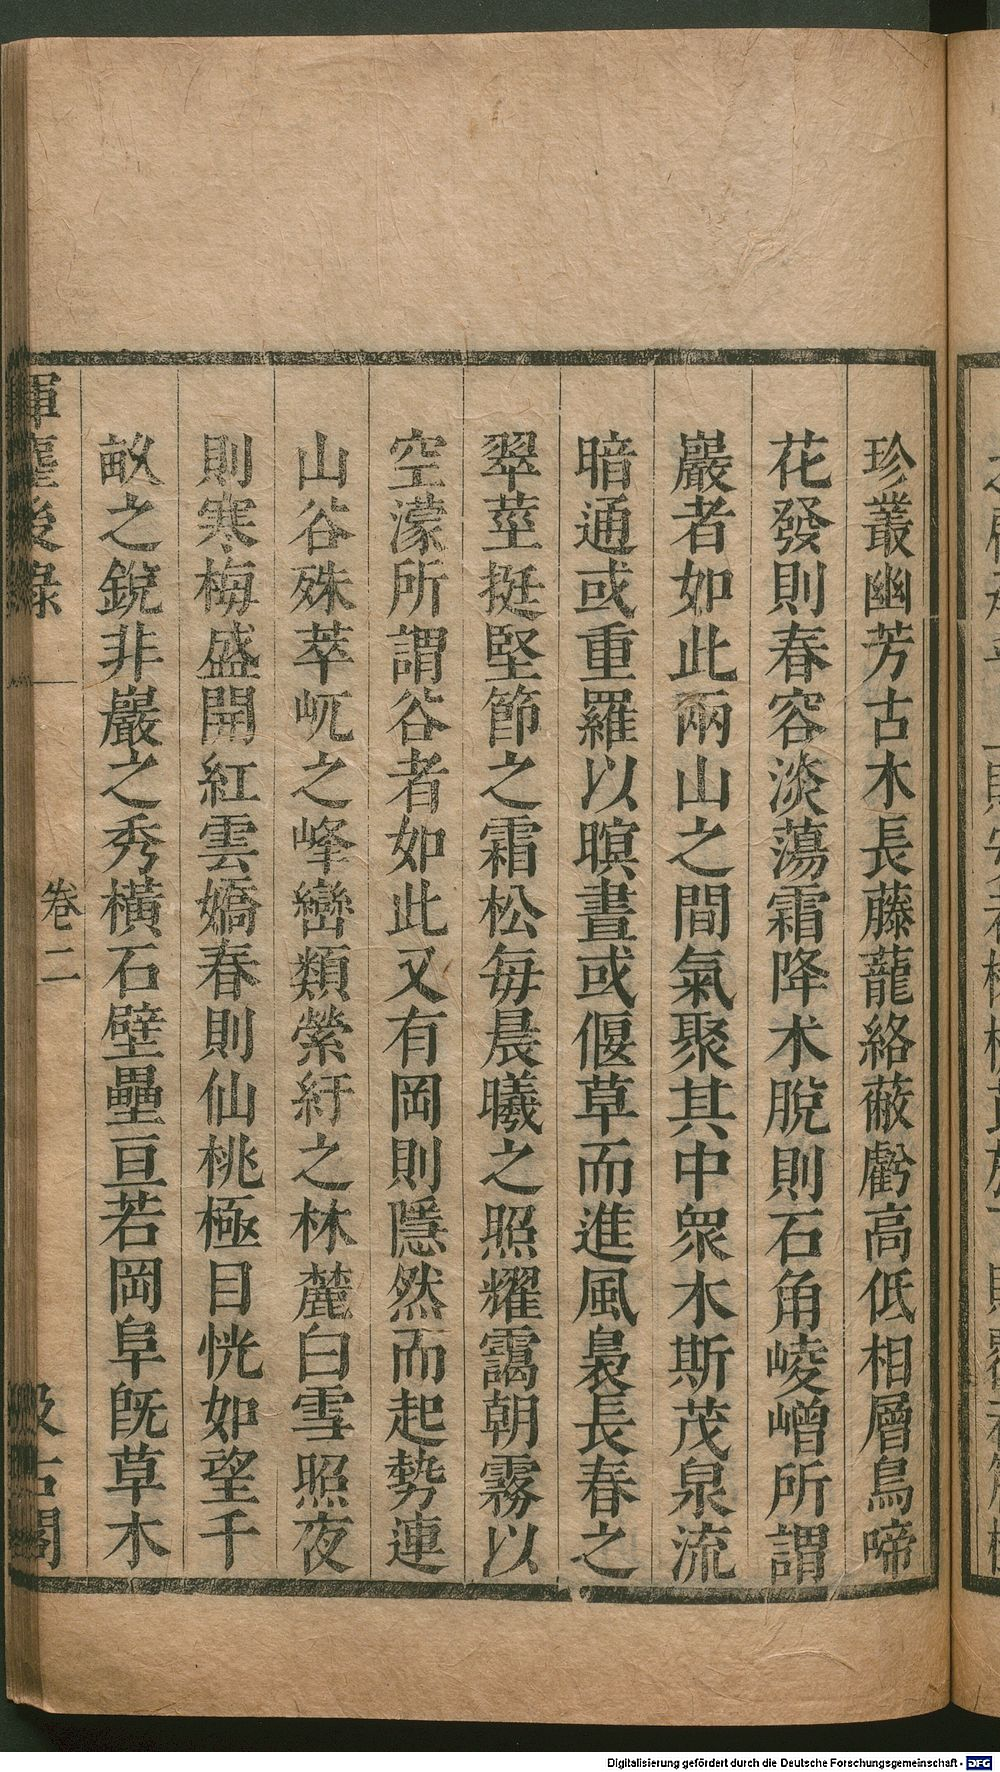 珍叢幽芳古木長藤蘢絡蔽虧高低相層鳥啼
花發則春容淡蕩霜降木脫則石角崚嶒所謂
巖者如此兩山之間氣聚其中眾木斯茂泉流
暗通或重羅以暝晝或偃草而進風裊長春之
翠莖挺堅節之霜松每晨曦之照耀靄朝霧以
空濛所謂谷者如此又有岡則隱然而起勢連
山谷殊萃屼之峰巒類縈紆之林麓白雪照夜
則寒梅盛開紅雲嬌春則仙桃極目恍如望千
畝之銳非巖之秀橫石壁壘亘若岡阜旣草木
揮麈後錄
卷二
汲古閣
Digitalisierung gefördert durch die Deutsche Forschungsgemeinschaft - DFG